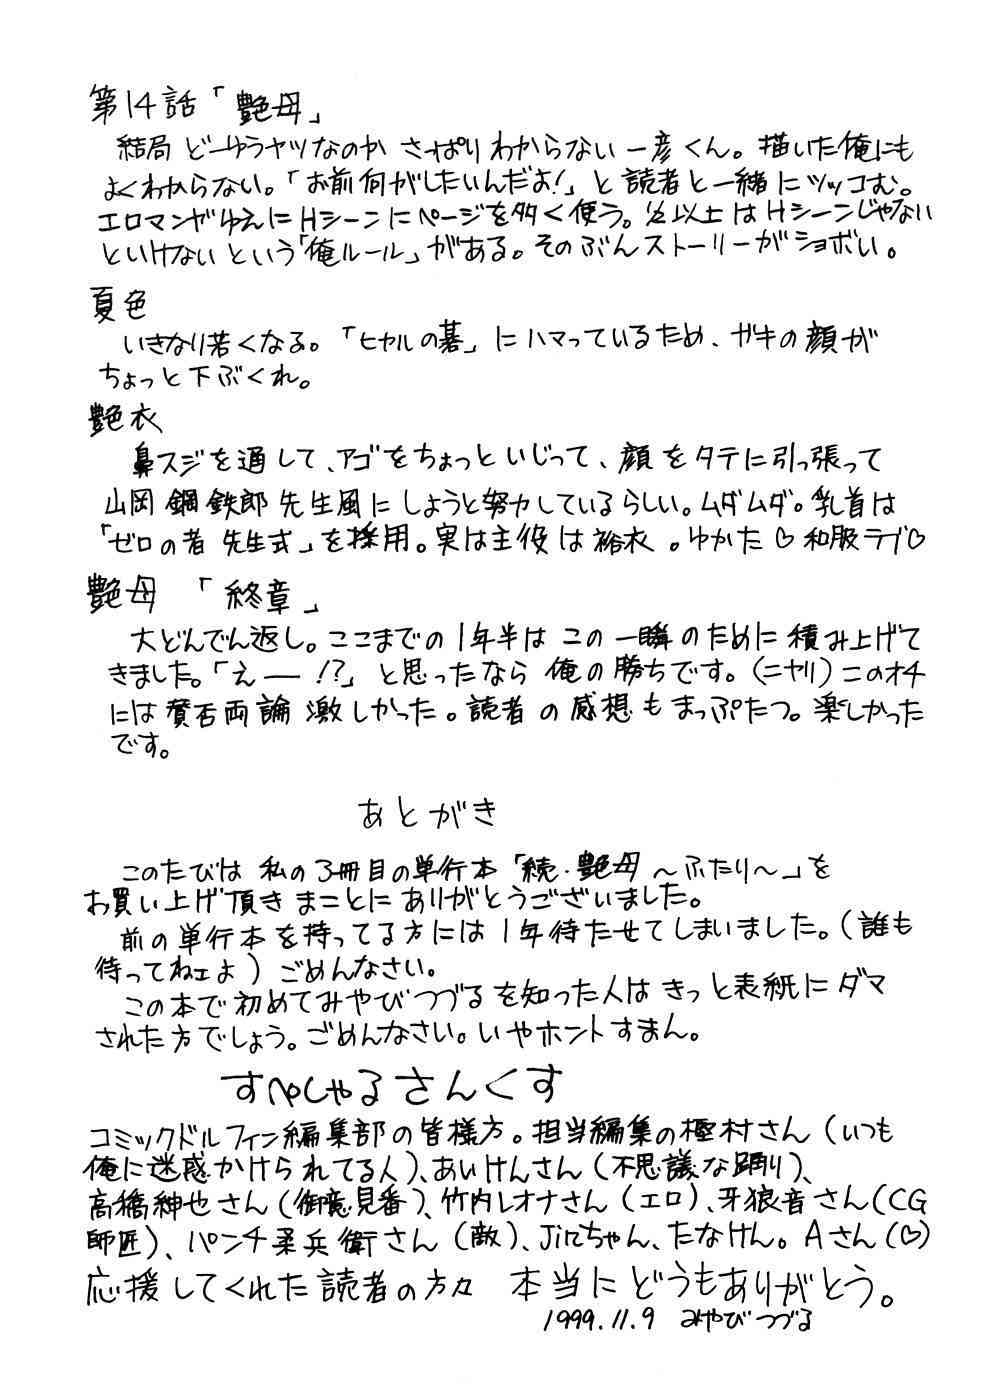 第14話「艶母」
結局どーゆうヤツなのかさっぱりわからない一彦くん。描いた俺にも
よくわからない。「お前何がしたいんだよ!」と読者と一緒にツッコむ。
エロマンガゆえにHシーンにページを多く使う。½以上はHシーンじゃない
といけないという「俺ルール」がある。そのぶんストーリーがショボい。
夏色
いきなり若くなる。「ヒカルの碁」にハマっているため、ガキの顔が
ちょっと下ぶくれ。
艶衣
鼻スジを通して、アゴをちょっといじって、顔をタテに引っ張って
山岡鋼鉄郎先生風にしようと努力しているらしい。ムダムダ。乳首は
「ゼロの者先生式」を採用。実は主役は裕衣。ゆかた♡和服ラブ♡
艶母 「終章」
大どんでん返し。ここまでの1年半はこの一瞬のために積み上げて
きました。「えー!?」と思ったなら俺の勝ちです。(ニヤリ)このオチ
には賛否両論激しかった。読者の感想もまっぷたつ。楽しかった
です。
あとがき
このたびは私の3冊目の単行本「続・艶母〜ふたり〜」を
お買い上げ頂きまことにありがとうございました。
前の単行本を持ってる方には1年待たせてしまいました。(誰も
待ってねェよ)ごめんなさい。
この本で初めてみやびつづるを知った人はきっと表紙にダマ
された方でしょう。ごめんなさい。いやホントすまん。
すぺしゃるさんくす
コミックドルフィン編集部の皆様方。担当編集の極村さん(いつも
俺に迷惑かけられてる人)、あいけんさん(不思議な踊り)、
高橋紳也さん(御意見番)、竹内レオナさん(エロ)、牙狼音さん(CG
師匠)、パンチ柔兵衛さん(敵)、Jinちゃん、たなけん。Aさん(♡)
応援してくれた読者の方々 本当にどうもありがとう。
1999.11.9 みやびつづる